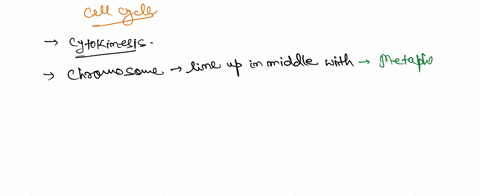 cell cycle
→ Cytokinesis.
→ Chromosome → line up in middle with → Metapho